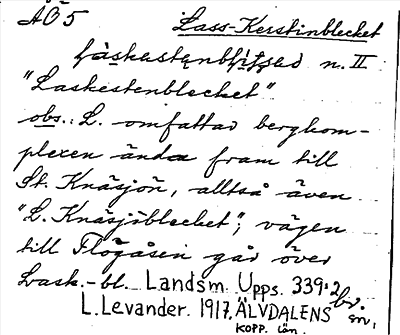 ÄÖ5
Lass-Kerstinblecket
n. II
"Laskestenblecket"
obs.: L. omfattar bergkom-
plexen ända fram till
St. Knäsjön, alltså även
"L. Knäsjöblecket"; vägen
till Flögåsen går över
Lask.-bl. Landsm. Upps. 339:2
L. Levander. 1917. ÄLVDALENS sn.
KOPP. län.